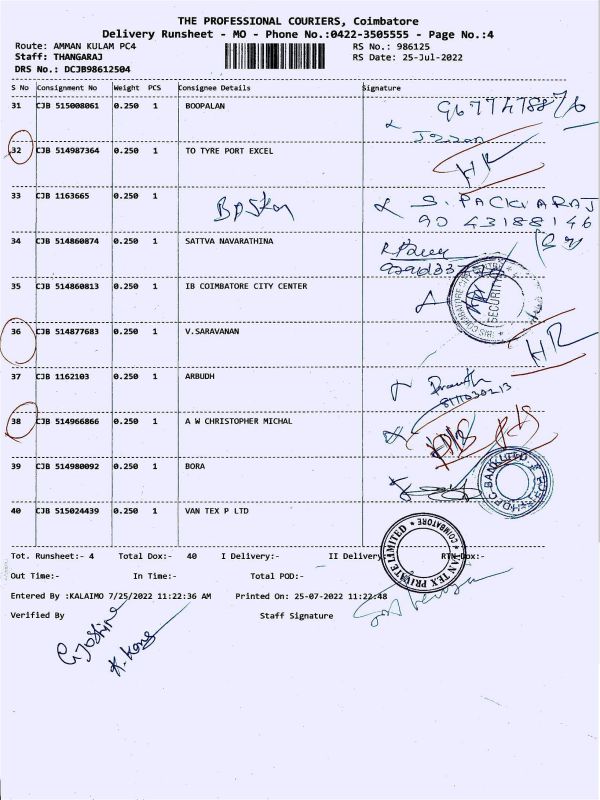 THE PROFESSIONAL COURIERS, Coimbatore
Delivery Runsheet - MO - Phone No.:0422-3505555 - Page No.:4
Route: AMMAN KULAM PC4 RS No.: 986125
Staff: THANGARAJ RS Date: 25-Jul-2022
DRS No.: DCJB98612504
S No Consignment No Weight PCS Consignee Details Signature
31 CJB 515008061 0.250 1 BOOPALAN
32 CJB 514987364 0.250 1 TO TYRE PORT EXCEL
HR
33 CJB 1163665 0.250 1
S. PACKIARAJ
90 43188146
34 CJB 514860874 0.250 1 SATTVA NAVARATHINA
35 CJB 514860813 0.250 1 IB COIMBATORE CITY CENTER
SECURITY
36 CJB 514877683 0.250 1 V.SARAVANAN
HR
37 CJB 1162103 0.250 1 ARBUDH
38 CJB 514966866 0.250 1 A W CHRISTOPHER MICHAL
39 CJB 514980092 0.250 1 BORA
BANK LTD
40 CJB 515024439 0.250 1 VAN TEX P LTD
VAN TEX PRIVATE LIMITED COIMBATORE
Tot. Runsheet:- 4 Total Dox:- 40 I Delivery:- II Delivery:- RTN Dox:-
Out Time:- In Time:- Total POD:-
Entered By :KALAIMO 7/25/2022 11:22:36 AM Printed On: 25-07-2022 11:22:48
Verified By Staff Signature